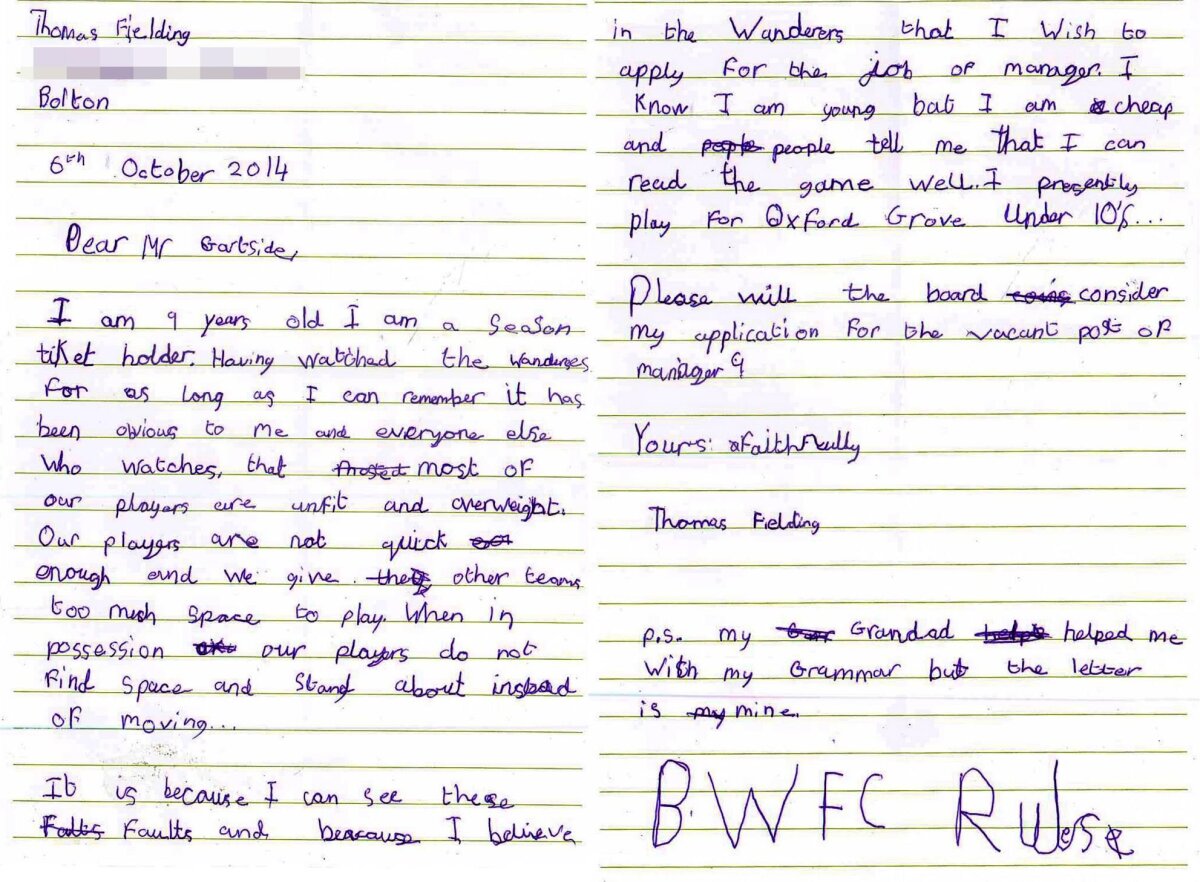 Thomas Fielding
Bolton
6th October 2014
Dear Mr Gartside,
I am 9 years old I am a season
tiket holder. Having watched the wanderes
for as long as I can remember it has
been obvious to me and everyone else
who watches, that most of
our players are unfit and overweight.
Our players are not quick
enough and we give other teams
too much space to play. When in
possession our players do not
find space and stand about instead
of moving...
It is because I can see these
Falts Faults and beacause I believe
in the Wanderers that I wish to
apply for the job of manager. I
know I am young but I am cheap
and people people tell me that I can
read the game well. I presently
play for Oxford Grove Under 10's...
Please will the board consider
my application for the vacant post of
manager?
Yours: faithfully
Thomas Fielding
p.s. my Grandad helped me
with my Grammar but the letter
is my mine.
B.W F C Rules